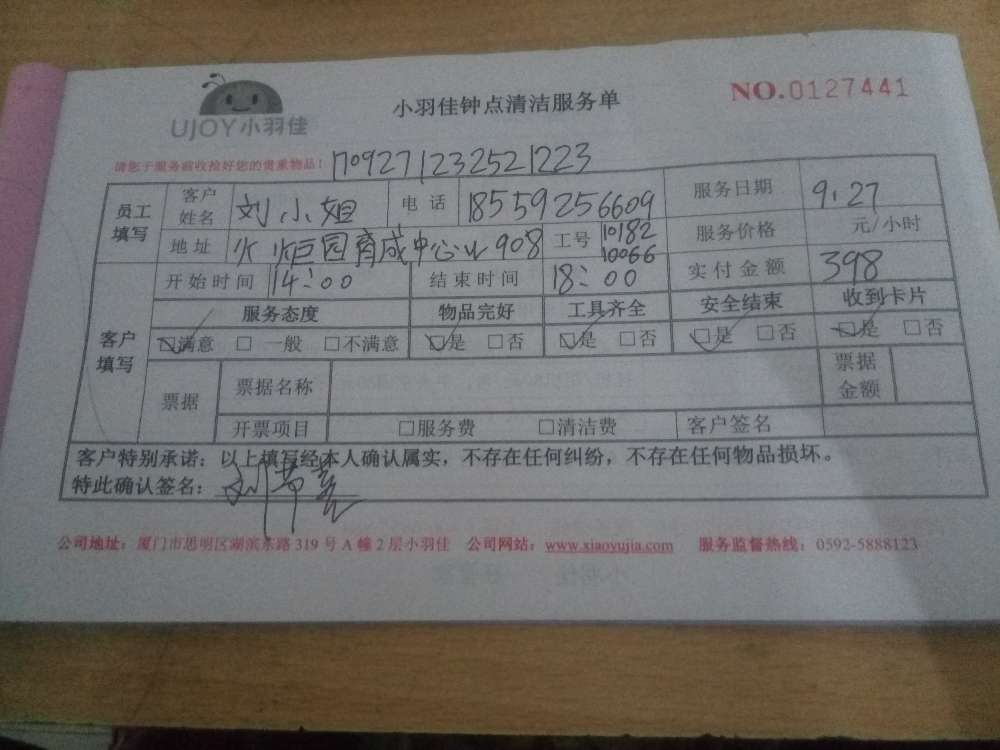 UJOY小羽佳
小羽佳钟点清洁服务单
NO.0127441
请您于服务前收捡好您的贵重物品!
1709271232521223
员工填写 客户姓名 刘小姐 电话 18559256609 服务日期 9.27
地址 火炬园育成中心 908 工号 10182 10066 服务价格 元/小时
客户填写 开始时间 14:00 结束时间 18:00 实付金额 398
服务态度 物品完好 工具齐全 安全结束 收到卡片
☑满意 □一般 □不满意 ☑是 □否 ☑是 □否 ☑是 □否 ☑是 □否
票据 票据名称 票据金额
开票项目 □服务费 □清洁费 客户签名
客户特别承诺:以上填写经本人确认属实,不存在任何纠纷,不存在任何物品损坏。
特此确认签名:
公司地址:厦门市思明区湖滨东路 319 号 A 幢 2 层小羽佳 公司网站:www.xiaoyujia.com 服务监督热线:0592-5888123